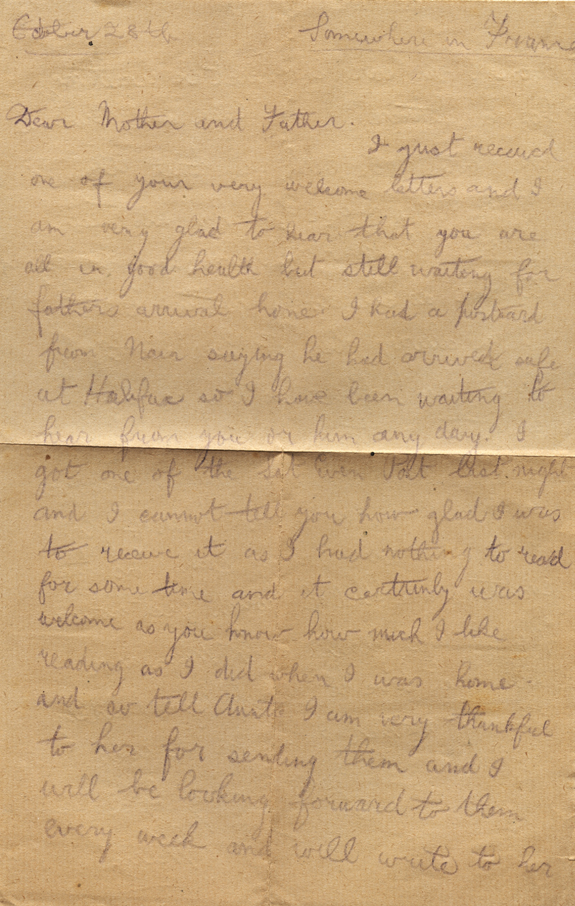 October 28th Somewhere in France
Dear Mother and Father.
I just received
one of your very welcome letters and I
am very glad to hear that you are
all in good health but still waiting for
fathers arrival home. I had a postcard
from saying he had arrived safe
at Halifax so I have been waiting to
hear from you or him any day. I
got one of the Sat Even Post last night
and I cannot tell you how glad I was
to receive it as I had nothing to read
for some time and it certainly was
welcome as you know how much I like
reading as I did when I was home.
and so tell Aunt I am very thankful
to her for sending them and I
will be looking forward to them
every week and will write to her